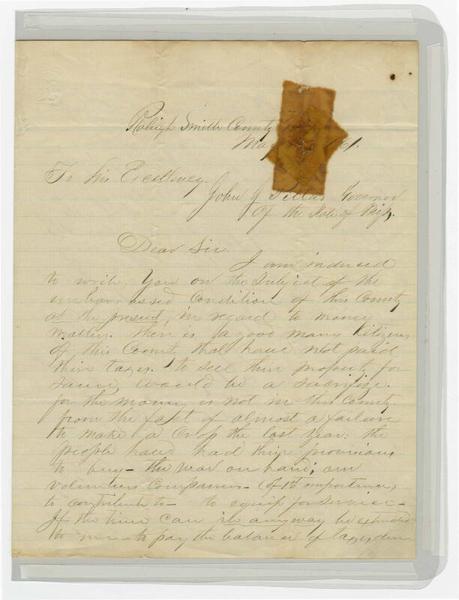 Raleigh Smith County
May 61
To his Excellency
John J Pettus Governor
of the State of Miss,
Dear Sir
I am induced
to write you on the Subject of the
embarrassed Condition of this County
at the present, in regard to money
matters. there is a good many Citizens
of this County that have not paid
their taxes. to sell their property for
same, would be a sacrifice
for the money is not in this County
from the fact of almost a failure
to make a Crop the last Year. the
people have had their provisions
to buy - the war on hand, our
volunteer Companies (of 1st importance)
to contribute to - to equip for service -
If the time can be anyway be extended
to me - to pay the balance of taxes due